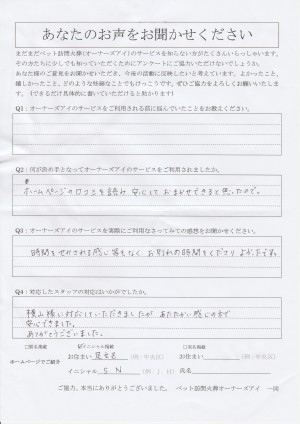 あなたのお声をお聞かせください
まだまだペット訪問火葬(オーナーズアイ)のサービスを知らない方がたくさんいらっしゃいます。
その方たちに少しでも知っていただくためにアンケートにご協力いただけないでしょうか。
あなた様のご意見をお聞かせいただき、今後の活動に反映したいと考えています。よかったこと、
嬉しかったこと、どのような些細なことでもけっこうです。ぜひご協力をよろしくお願いいたしま
す。(できるだけ具体的に書いていただけると助かります)
Q1：オーナーズアイのサービスをご利用される前に悩んでいたことをお教えください。
Q2：何が決め手となってオーナーズアイのサービスをご利用されましたか。
ホームページの口コミを読み 安心して おまかせできると思ったので。
Q3：オーナーズアイのサービスを実際にご利用なさってみての感想をお聞かせください。
時間をせかされる感じ等もなく お別れの時間をくださり よかったです。
Q4：対応したスタッフの対応はいかがでしたか。
横山様に対応していただきましたが あたたかい感じの方で
安心できました。
ありがとうございました。
□匿名掲載 ☑イニシャル掲載 □実名掲載
ホームページでご紹介
お住まい 足立区 (例：中央区) お住まい (例：中央区)
イニシャル S N (例：J．H) 氏名
ご協力、本当にありがとうございました。 ペット訪問火葬オーナーズアイ 一同